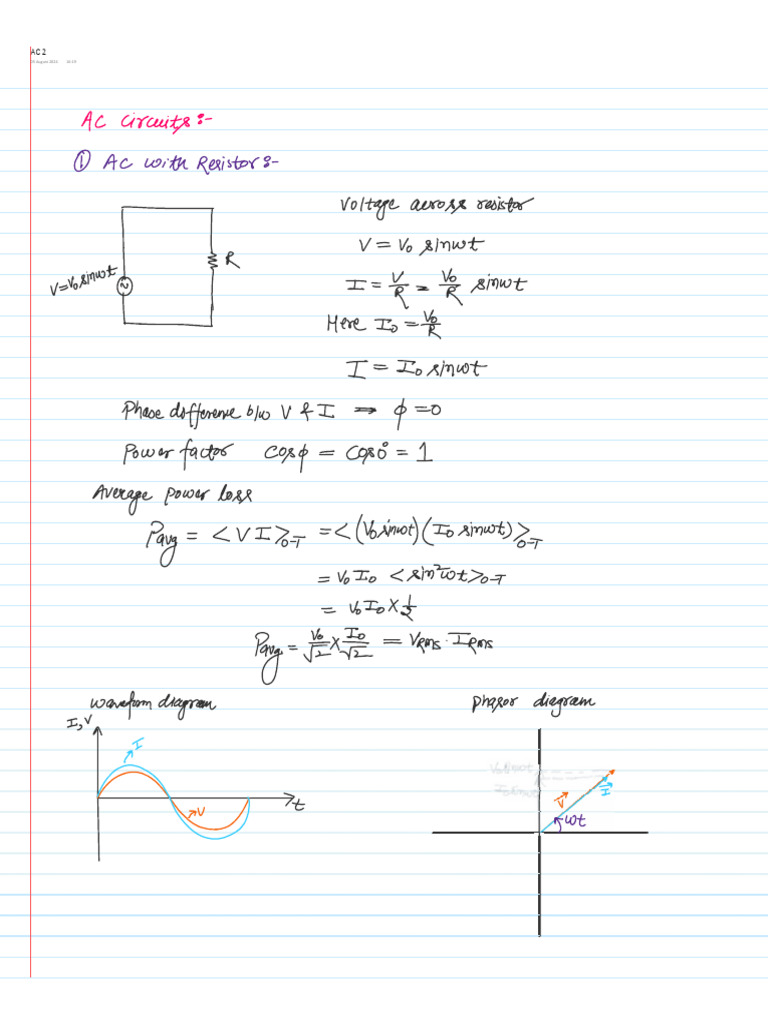 AC 2
AC Circuits:-
① AC with Resistor:-
Voltage across resistor
V = V₀ sinωt
V=V₀ sinωt
R
I = V/R = V₀/R sinωt
Here I₀ = V₀/R
I = I₀ sinωt
Phase difference b/w V & I → ϕ = 0
Power factor cosϕ = cos0° = 1
Average power loss
Pavg = <VI>₀₋T = <(V₀sinωt)(I₀ sinωt)>₀₋T
= V₀I₀ <sin²ωt>₀₋T
= V₀I₀ × 1/2
Pavg = V₀/√2 × I₀/√2 = VRMS · IRMS
waveform diagram
phasor diagram
I, V
I
V
t
V₀sinωt
I₀sinωt
V⃗
I⃗
ωt